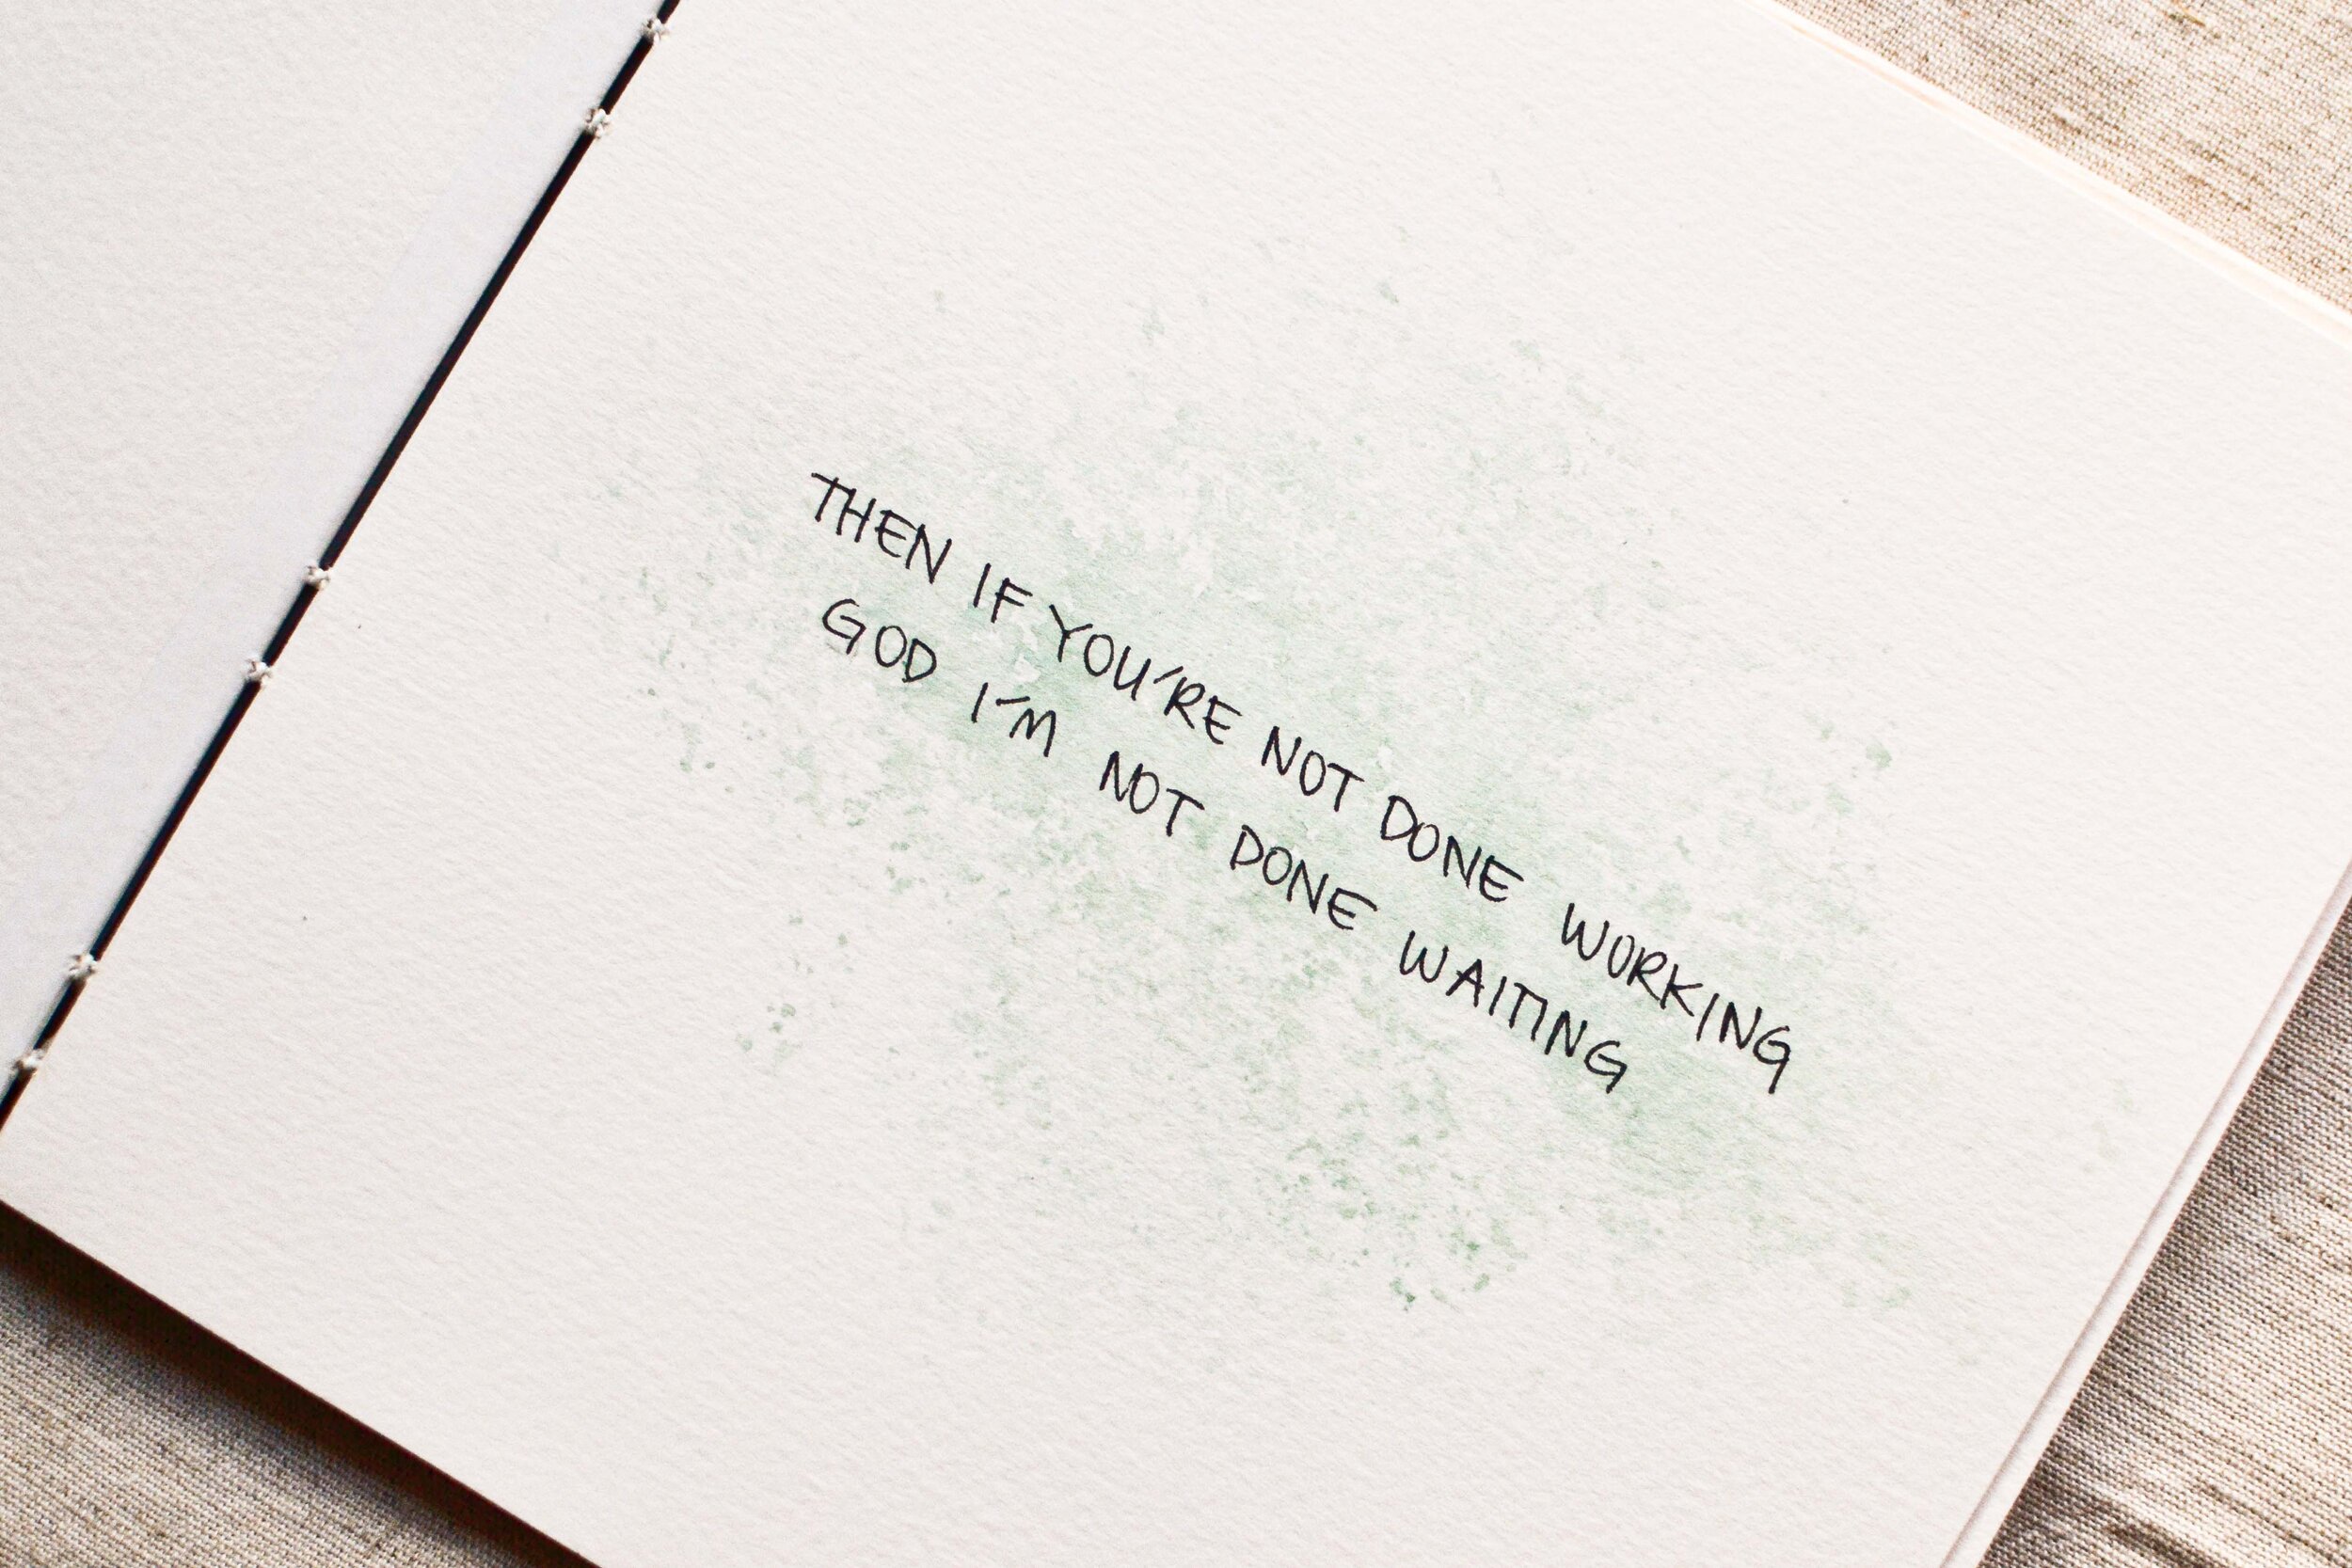 THEN IF YOU'RE NOT DONE WORKING
GOD I'M NOT DONE WAITING